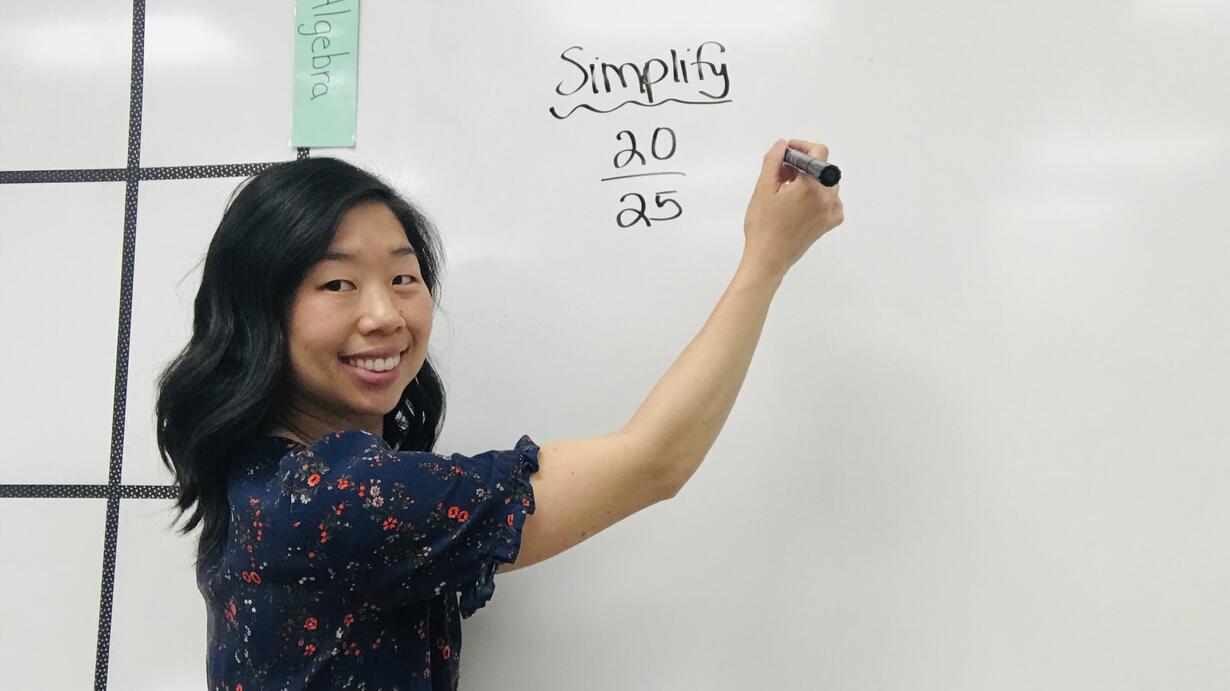 Algebra
Simplify
20
25